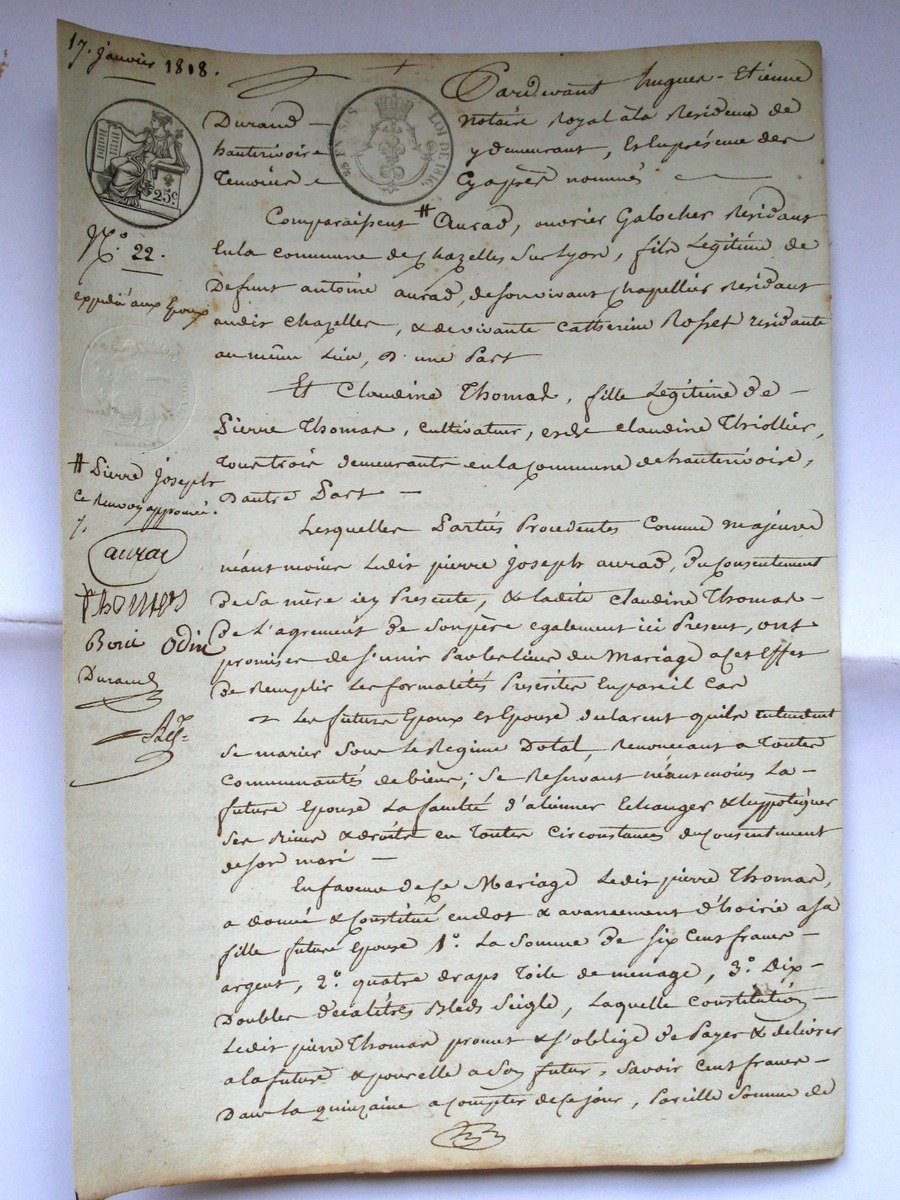 17. janvier 1818.
25c
25 EN SUS
LOI DE 1816.
N.° 22.
expédié aux Epoux
Pardevant hugues - Etienne
Durand - notaire royal à la Residence de
hauterivoire y demeurant, Et En présence des
Temoins cy après nommés
Comparaissent # Aurad, ouvrier Galocher Residant
En la commune de Chazelles Sur Lyon, fils Legitime de
Defunt antoine aurad, de son vivant Chapellier Residant
audit Chazelles, & de vivante Catherine Rosset residante
au même Lieu, D'une Part
Et Claudine Thomas, fille Legitime de -
Pierre Thomas, Cultivateur, et de Claudine Thiollier,
Tous trois demeurants en la Commune de hauterivoire,
D'autre Part -
# Pierre Joseph
Ce Renvoy approuvé.
aurad
Thomas
Odin
Durand
Lesquelles Parties Procedentes Comme majeures
néantmoins Ledit pierre Joseph aurad, du Consentement
de Sa mère icy Presente, & ladite Claudine Thomas -
de L'agrement de Son père egalement ici Present, ont
promises de S'unir Par les liens du Mariage a Cet Effet
de Remplir Les formalités Prescrites En pareil Cas
Les future Epoux et Epouse declarent quils entendent
Se marier Sous Le Regime Dotal, Renoncant a Toutes
Communautés de biens; Se Reservant néantmoins La -
future Epouse La faculté d'alienner Echanger & hyppotéquer
Ses Biens & droits en Toutes Circonstances du Consentement
de son mari -
En faveur de Ce Mariage Ledit pierre Thomas,
a donné & Constitué en dot & avancement d'hoirie a Sa
fille future Epouse 1°. La Somme de Six Cent francs -
argent, 2°. quatre draps Toile de menage, 3°. Dix -
Doubles decalitres Bled Seigle, Laquelle Constitution -
Ledit pierre Thomas promet & S'oblige de Payer & delivrer
a la future & pour elle a Son futur, Savoir Cent francs -
Dans la quinzaine a Compter de Ce jour, Pareille Somme de